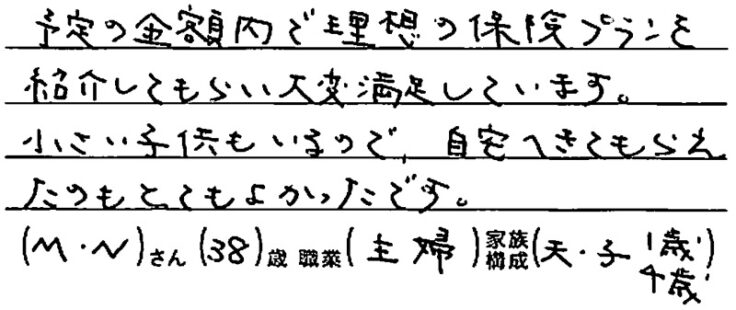 予定の金額内で理想の保険プランを
紹介してもらい大変満足しています。
小さい子供もいるので、自宅へきてもらえ
たのもとてもよかったです。
(M・N)さん(38)歳 職業(主婦)家族構成(夫・子 1歳 4歳)